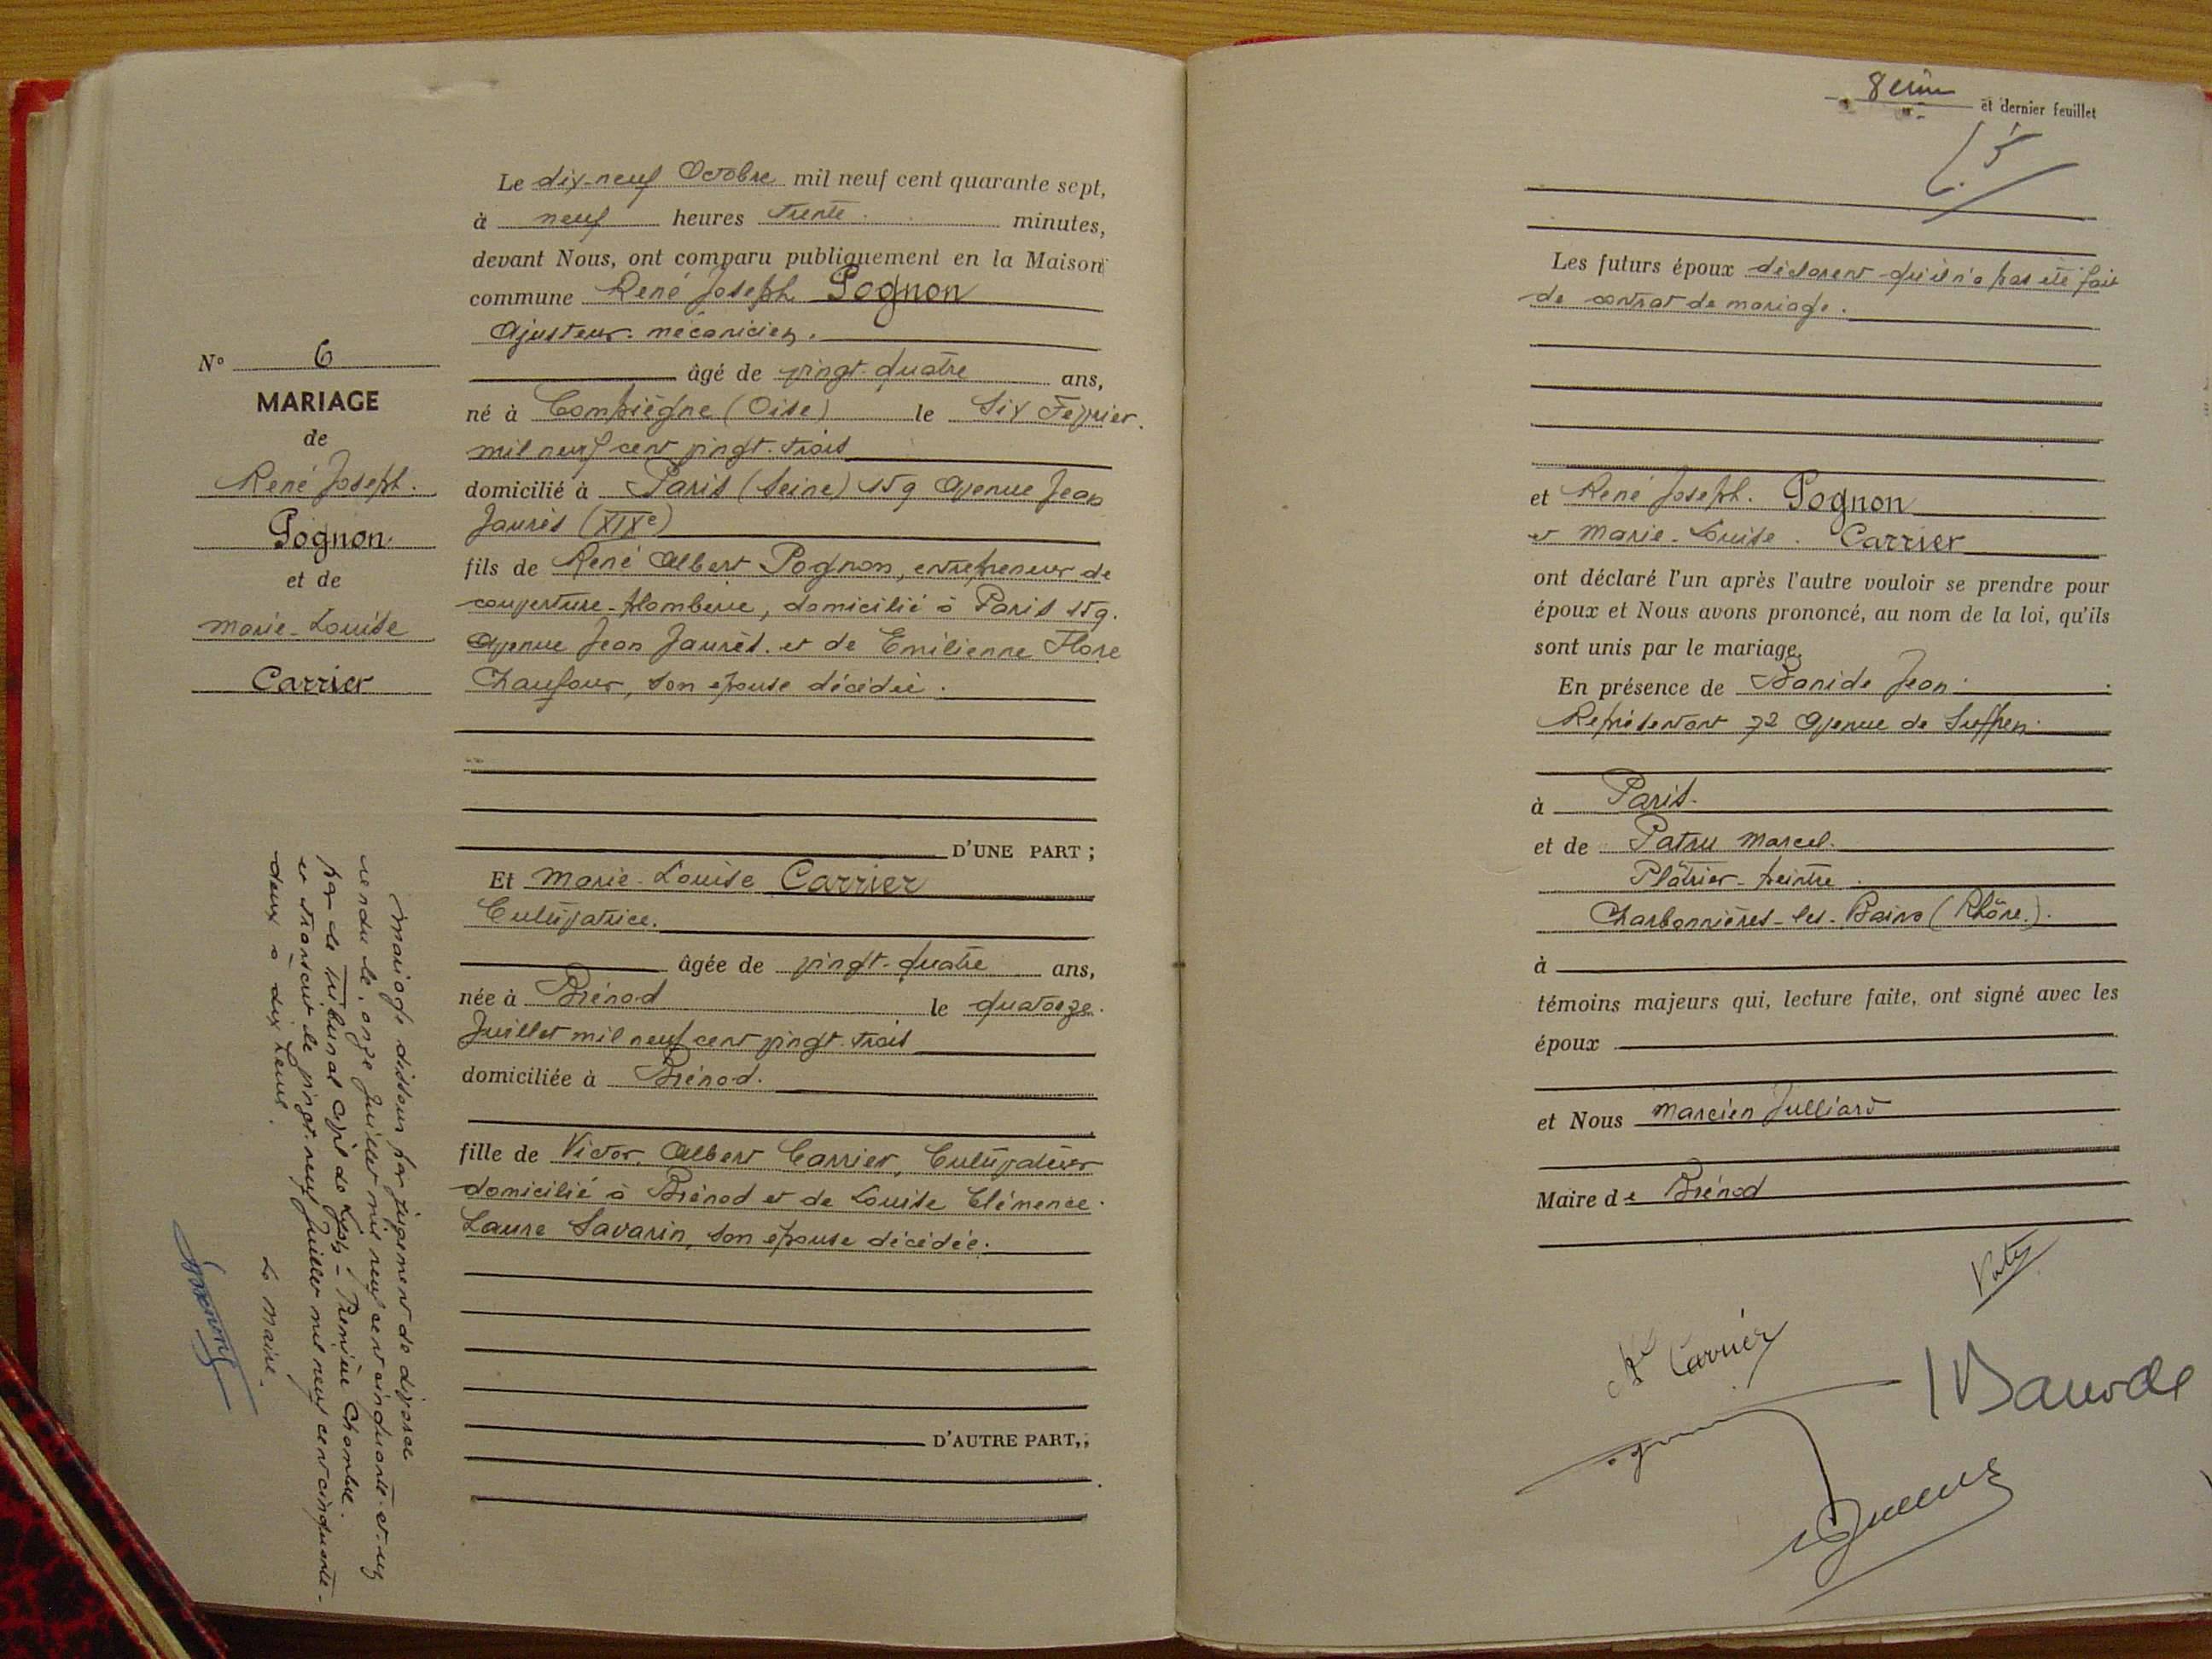 N° 6
MARIAGE
de
René Joseph.
Pognon
et de
Marie-Louise
Carrier
Mariage dissous par jugement de divorce
rendu le onze Juillet mil neuf cent cinquante et un
par le tribunal civil de Lyon - Première Chambre.
et transcrit le vingt-neuf Juillet mil neuf cent cinquante-
deux à dix heures.
Le Maire.
Le dix-neuf Octobre mil neuf cent quarante sept,
à neuf heures trente minutes,
devant Nous, ont comparu publiquement en la Maison
commune René Joseph Pognon
Ajusteur-mécanicien.
âgé de vingt-quatre ans,
né à Compiègne (Oise) le Six Février
mil neuf cent vingt-trois
domicilié à Paris (Seine) 159 Avenue Jean
Jaurès (XIXe)
fils de René Albert Pognon, entrepreneur de
couverture-plomberie, domicilié à Paris 159.
Avenue Jean Jaurès. et de Emilienne Flore
Chaufour, son épouse décédée.
D'UNE PART ;
Et Marie-Louise Carrier
Cultivatrice.
âgée de vingt-quatre ans,
née à Brénod le quatorze
Juillet mil neuf cent vingt-trois
domiciliée à Brénod.
fille de Victor, Albert Carrier, Cultivateur
domicilié à Brénod et de Louise Clémence
Laure Savarin, son épouse décédée.
D'AUTRE PART,;
8ème et dernier feuillet
Les futurs époux déclarent qu'il n'a pas été fait
de contrat de mariage.
et René Joseph. Pognon
et Marie-Louise. Carrier
ont déclaré l'un après l'autre vouloir se prendre pour
époux et Nous avons prononcé, au nom de la loi, qu'ils
sont unis par le mariage.
En présence de Jean
Représentant 72 Avenue de Suffren
à Paris.
et de Patru Marcel.
Plâtrier-peintre.
Charbonnières-les-Bains (Rhône).
à
témoins majeurs qui, lecture faite, ont signé avec les
époux
et Nous Marcien Julliard
Maire de Brénod
Carrier